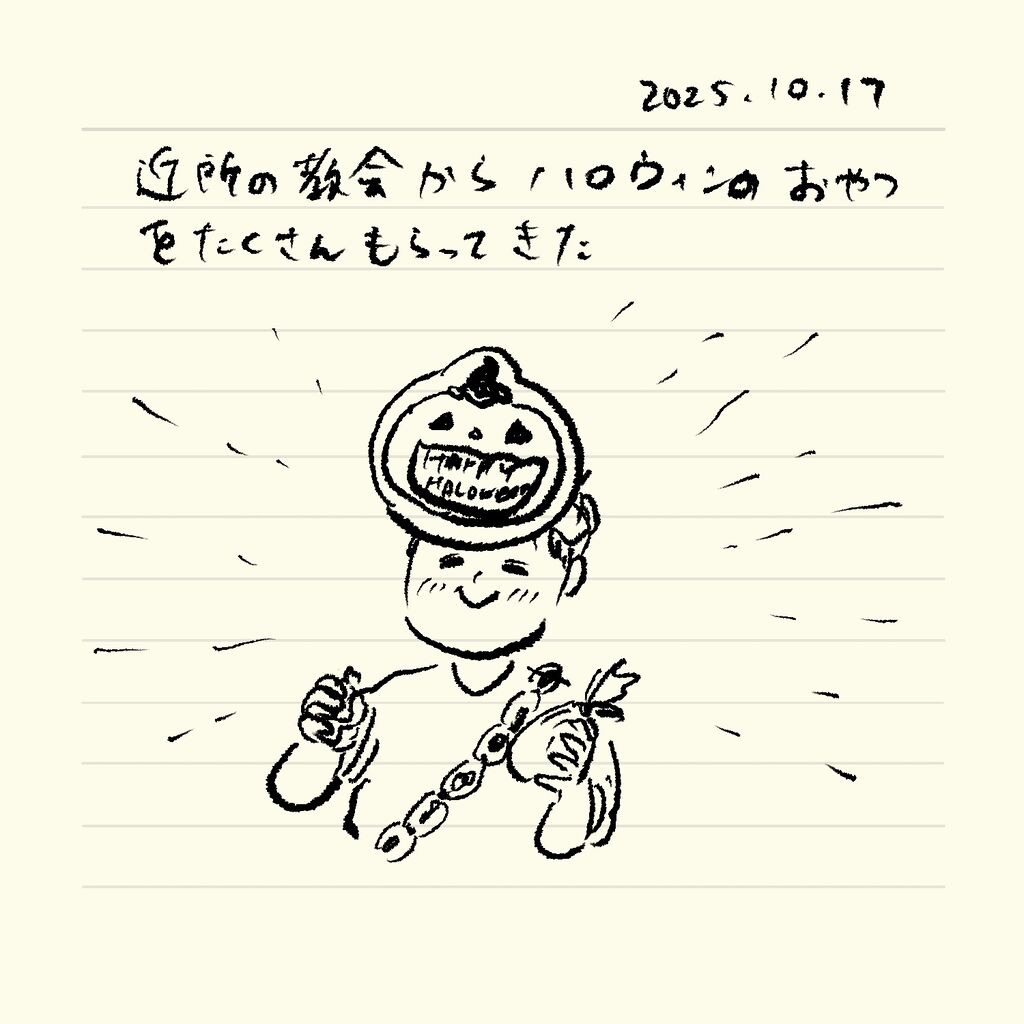 2025.10.17
近所の教会からハロウィンのおやつ
をたくさんもらってきた
HAPPY
HALOWEEN